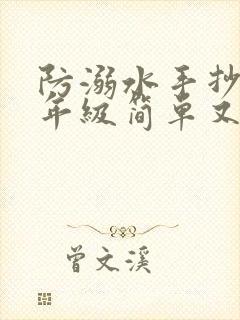 防溺水手抄
年级简单又
曾文溪